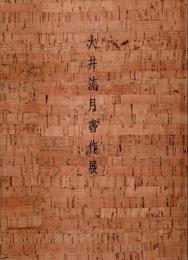 大井満月書作展